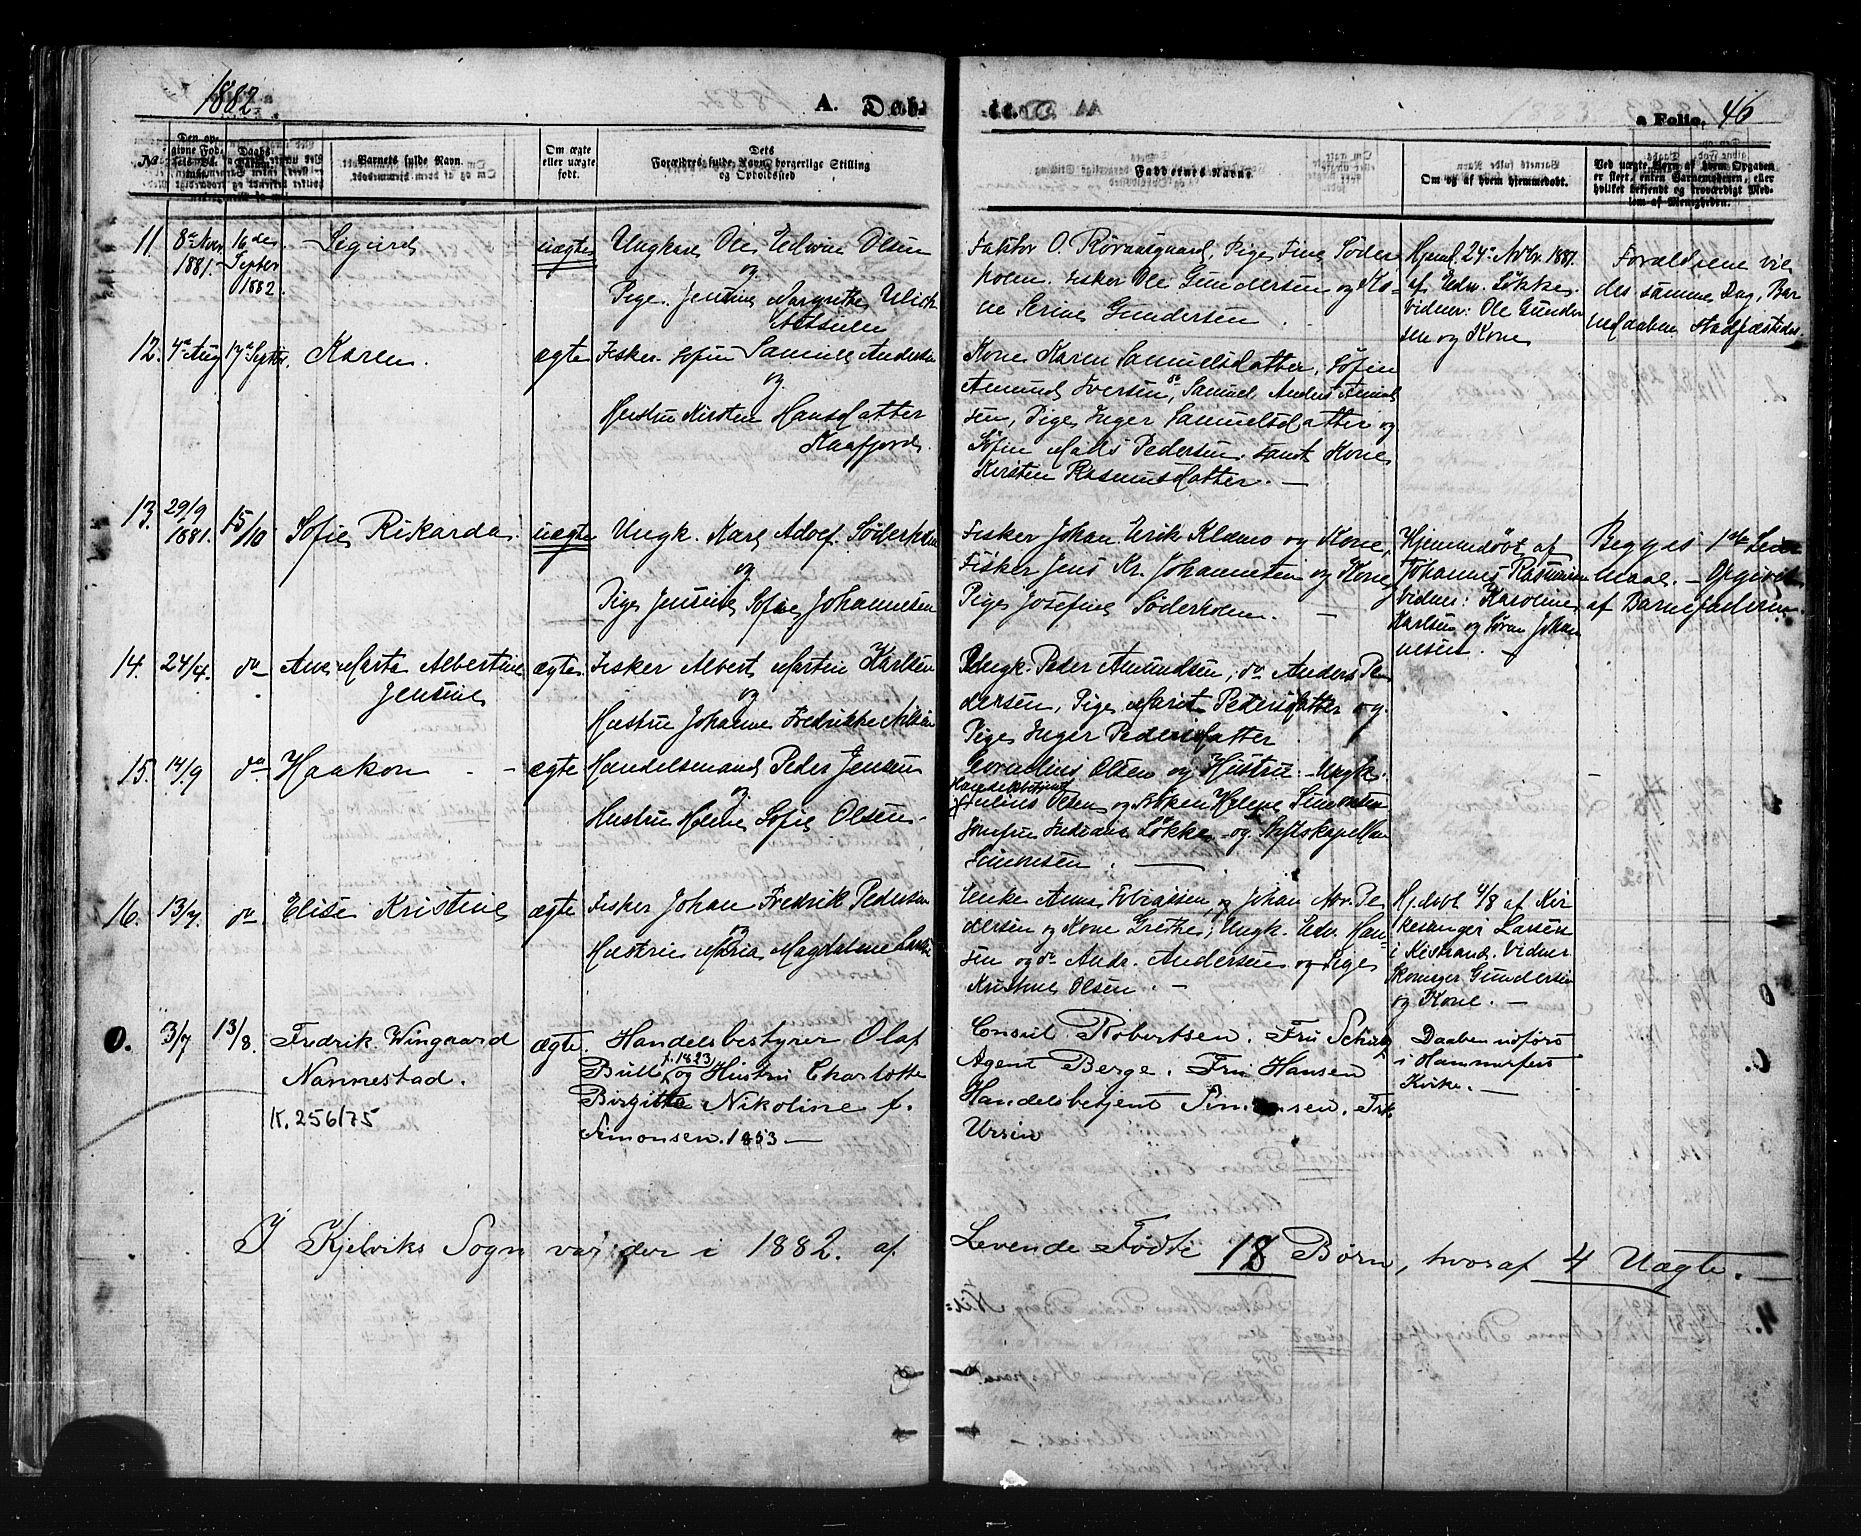 1882.
A. Døb-
te.
a Folio. 46
No.
Barnets fulde Navn.
Om ægte
eller uægte
født.
Dets
Forældres fulde Navn, borgerlige Stilling
og Opholdssted
Faddernes Navne.
Om og af hvem hjemmedøbt.
11. 8de Novr 1881. 16des Septbr 1882. Sigurd uægte
Ungkarl Ole Edvin Olsen
og
Pige Jensine Margrethe Ulich
Faktor O. Røraasgaard, Pige Fine Søder
holm. Fisker Ole Gundersen og Ko-
ne Serine Gundersen
Hjemd. 24de Novbr. 1881.
af Edv. Løkke.
Vidner: Ole Gunder
sen og Kone
Forældrene vie
des samme Dag, Bar
nedaaben stadfæstedes.
12. 4de Aug 17de Septbr. Karen. ægte
Fisker Sofin Samuel Andersen
og
Hustru Kirsten Hansdatter
Kaafjord.
Kone Karen Samuelsdatter, Sofin
Amund Iversen, do Samuel Anders Amund
sen, Pige Inger Samuelsdatter og
Sofin Mads Pedersen samt Kone
Kirsten Rasmusdatter. —
13. 29/9 1881. 15/10 Sofie Rikarda uægte
Ungk. Karl Adolf Søderholm
og
Pige Jensine Sofie Johannesen
Fisker Johan Erik Klemo og Kone,
Fisker Jens Kr. Johannesen og Kone
Pige Josefine Søderholm. —
Hjemmedøbt af
Johannes Rasmussen
Vidner: Karoline
Karlsen og Søren Johan
nesen. —
Begges 1ste Leier
maal. — Opgivet
af Barnefaderen.
14. 24/4. do Ane Marta Albertine
Jensine
ægte
Fisker Albert Martin Karlsen
og
Hustru Johanne Fredrikke Nilsen
Ungk. Peder Amundsen, do Anders Pe
dersen, Pige Marit Pedersdatter og
Pige Inger Pedersdatter
15. 14/9 do Haakon - - ægte
Handelsmand Peder Jensen
og
Hustru Helene Sofie Olsen.
Cornelius Olsen og Hustru. Ungk.
Julius Olsen og Frøken Helene Simonsen
Jomfru Indiane Løkke og Stiftskapellan
Simonsen. —
16. 13/7. do Elise Kristine ægte
Fisker Johan Fredrik Pedersen
og
Hustru Maria Magdalene Larsen
Enke Anna Tobiassen, og Johan Nor. Pe
dersen og Kone Grethe, Ungk. Edv. Han-
sen og do Andr. Andersen og Pige
Kristine Olsen. —
Hj.døbt 4/8 af Kir
kesanger Larsen
i Kistrand. Vidner
Skomager Gundersen
og Kone. —
0. 3/7 13/8. Fredrik Wingaard
Nannestad.
K. 256/75
ægte.
Handelsbestyrer Olaf
Bull f. 1823 og Hustru Charlotte
Birgitta Nikoline f.
Simonsen. 1853 —
Consul Robertsen. Fru Schütz
Agent Berge. Fru Hansen
Handelsbetjent Simonsen. Frk
Ursin
Daaben udført
i Hammerfest
Kirke. —
I Kjelviks Sogn var der i 1882. af
Levende Fødte 18 Børn, hvoraf 4 Uægte. —